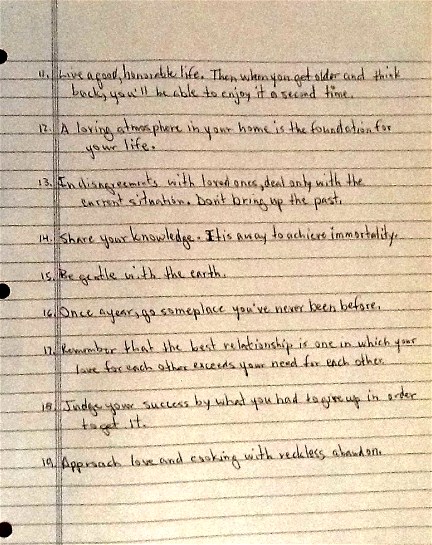 11. Live a good, honorable life. Then when you get older and think
back, you'll be able to enjoy it a second time.
12. A loving atmosphere in your home is the foundation for
your life.
13. In disagreements with loved ones, deal only with the
current situation. Don't bring up the past.
14. Share your knowledge. It is a way to achieve immortality.
15. Be gentle with the earth.
16. Once a year, go someplace you've never been before.
17. Remember that the best relationship is one in which your
love for each other exceeds your need for each other.
18. Judge your success by what you had to give up in order
to get it.
19. Approach love and cooking with reckless abandon.